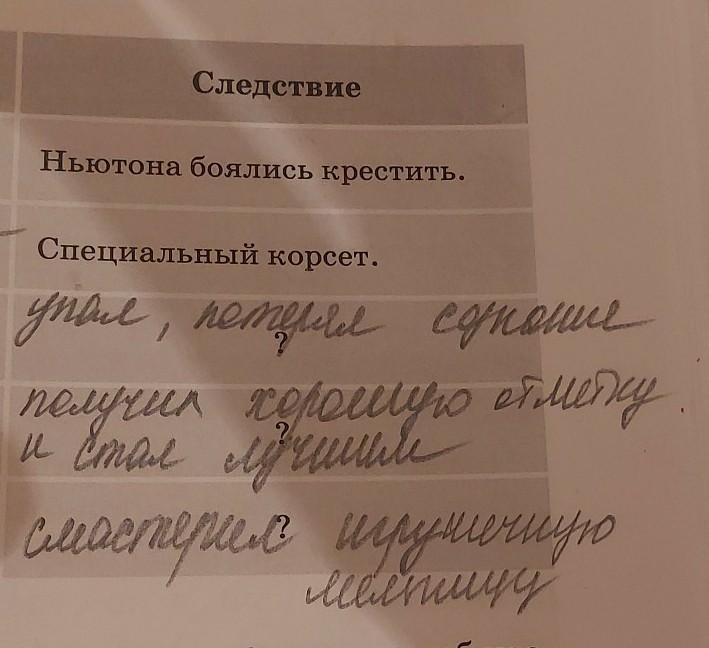 Следствие
Ньютона боялись крестить.
Специальный корсет.
упал, потерял
?
получил хорошую отметку
?
и стал лучшим
смастерил ? игрушечную
мельницу